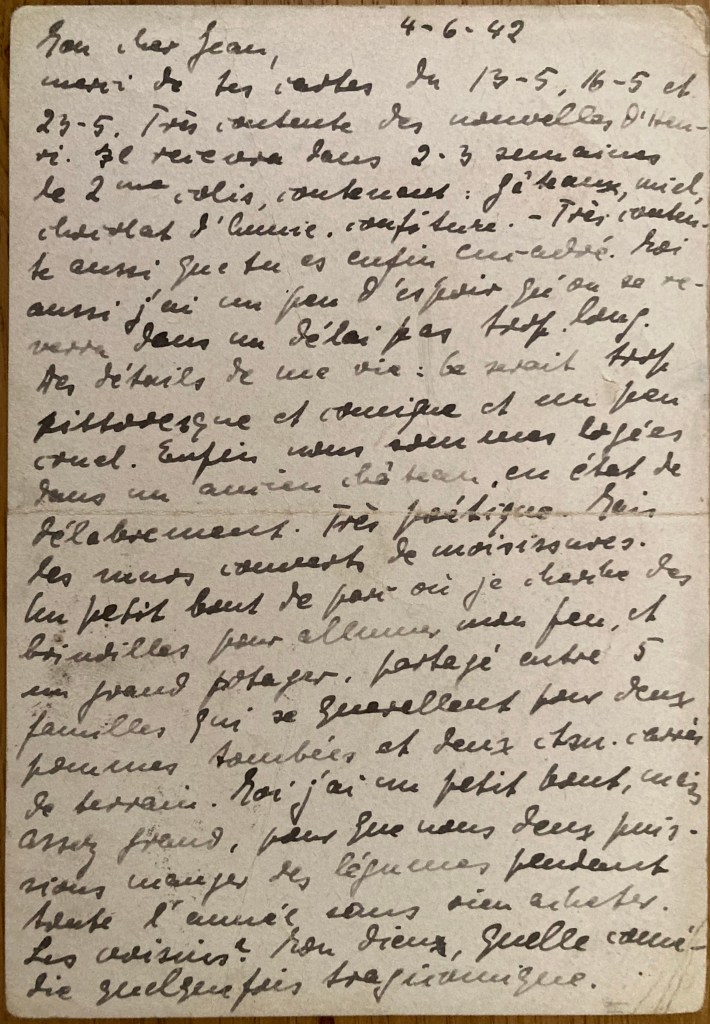 4-6-42
Mon cher Jean,
merci de tes cartes du 13-5, 16-5 et
23-5. Très contente des nouvelles d'Hen-
ri. Il recevra dans 2-3 semaines
le 2me colis, contenant: gâteaux, miel,
chocolat d'Annie, confiture. - Très conten-
te aussi que tu es enfin encadré. Moi
aussi j'ai un peu d'espoir qu'on se re-
verra dans un délai pas trop long.
Des détails de ma vie: Ce serait trop
pittoresque et comique et un peu
cruel. Enfin nous sommes logées
dans un ancien château, en état de
délabrement. Très poétique. Mais
les murs couverts de moisissures.
Un petit bout de parc où je cherche des
brindilles pour allumer mon feu, et
un grand potager, partagé entre 5
familles qui se querellent pour deux
pommes tombées et deux ctm. carrés
de terrain. Moi j'ai un petit bout, mais
assez grand, pour que nous deux puis-
sions manger des légumes pendant
toute l'année sans rien acheter.
Les voisins? Mon dieu, quelle comé-
die quelquefois tragicomique.